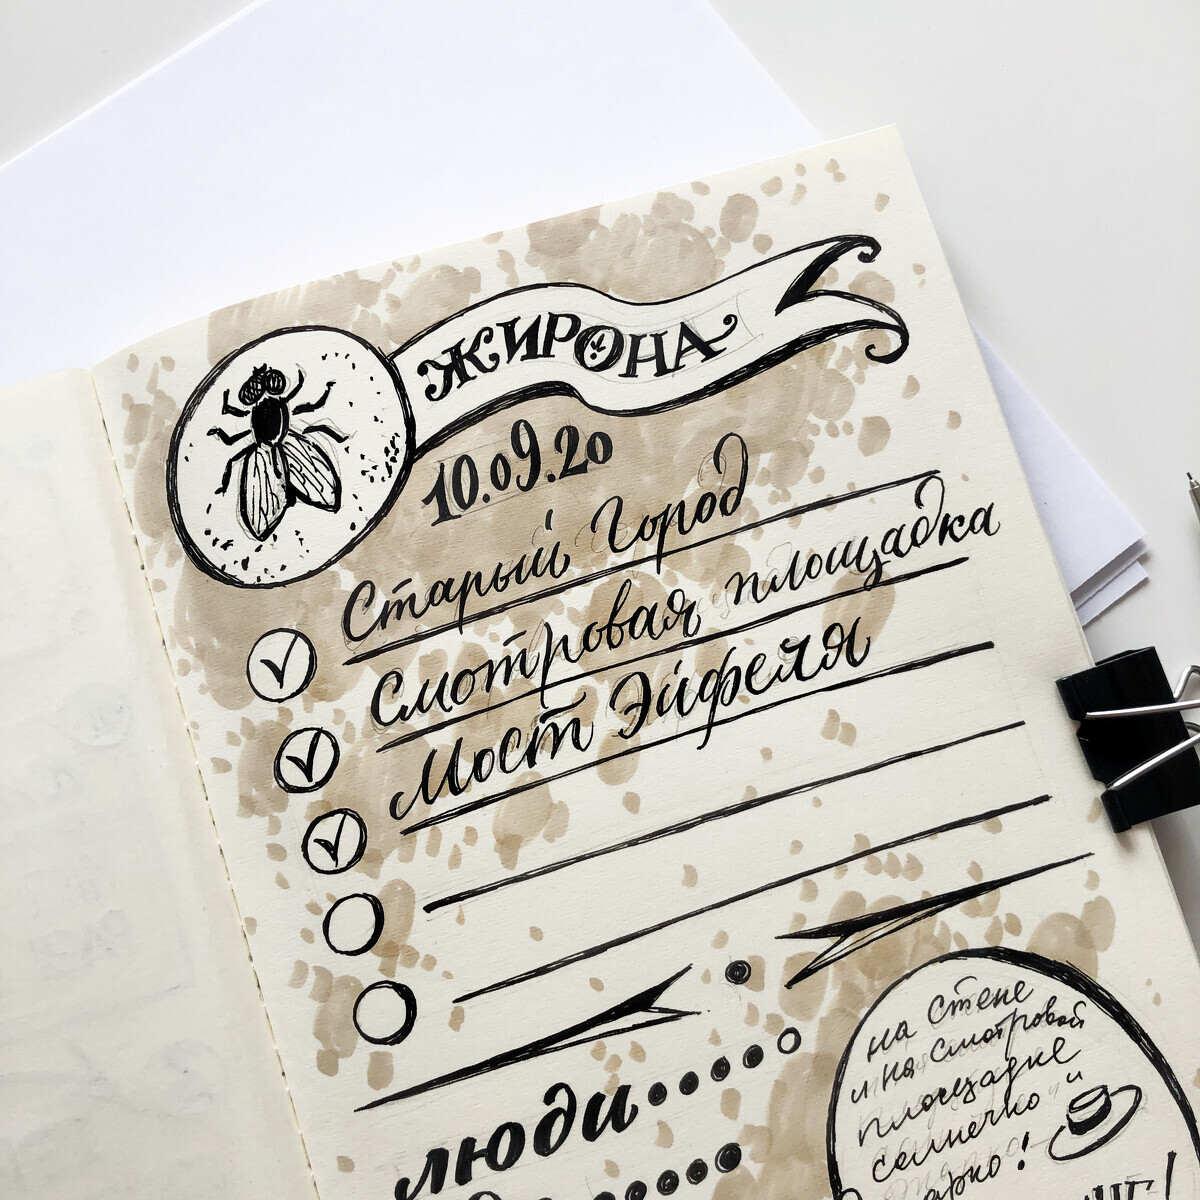 ЖИРОНА
10.09.20
Старый Город
Смотровая площадка
Мост Эйфеля
люди
на стене
и на смотровой
площадке
солнечно и